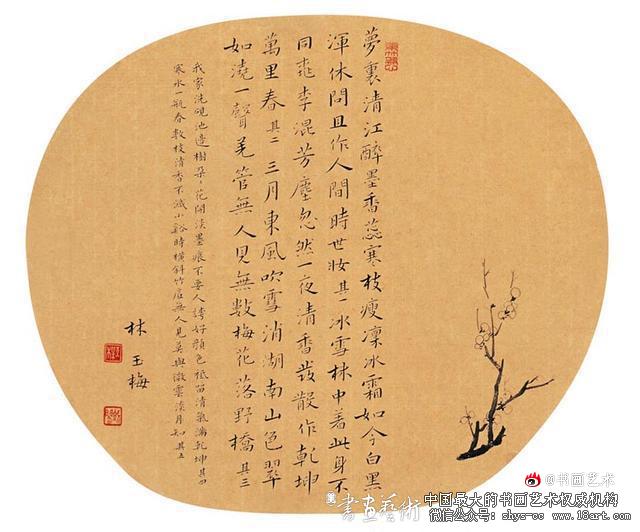 夢裏清江醉墨香蕊寒枝瘦凜冰霜如今白黑
渾休問且作人間時世妝其一冰雪林中着此身不
同桃李混芳塵忽然一夜清香發散作乾坤
萬里春其二三月東風吹雪消湖南山色翠
如澆一聲羌管無人見無數梅花落野橋其三
我家洗硯池邊樹朵々花開淡墨痕不要人誇好顏色祗留清氣滿乾坤其四
寒水一瓶春數枝清香不減小谿時橫斜竹底無人見莫與微雲淡月知其五
林玉梅
@书画艺术
書画藝術
中国最大的书画艺术权威机构
微信公众号:shys-cc www.18art.com